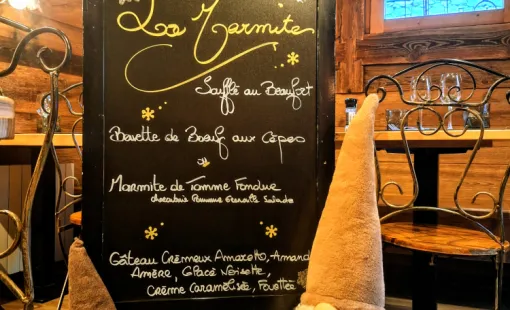 La Marmite
Soufflé au Beaufort
Bavette de Bœuf aux Cèpes
Marmite de Tomme Fondue
charcuterie Pommes Salade
Gâteau Crémeux Amaretto, Amande
Amère, Glace Noisette,
Crème Caramélisée, Fouettée